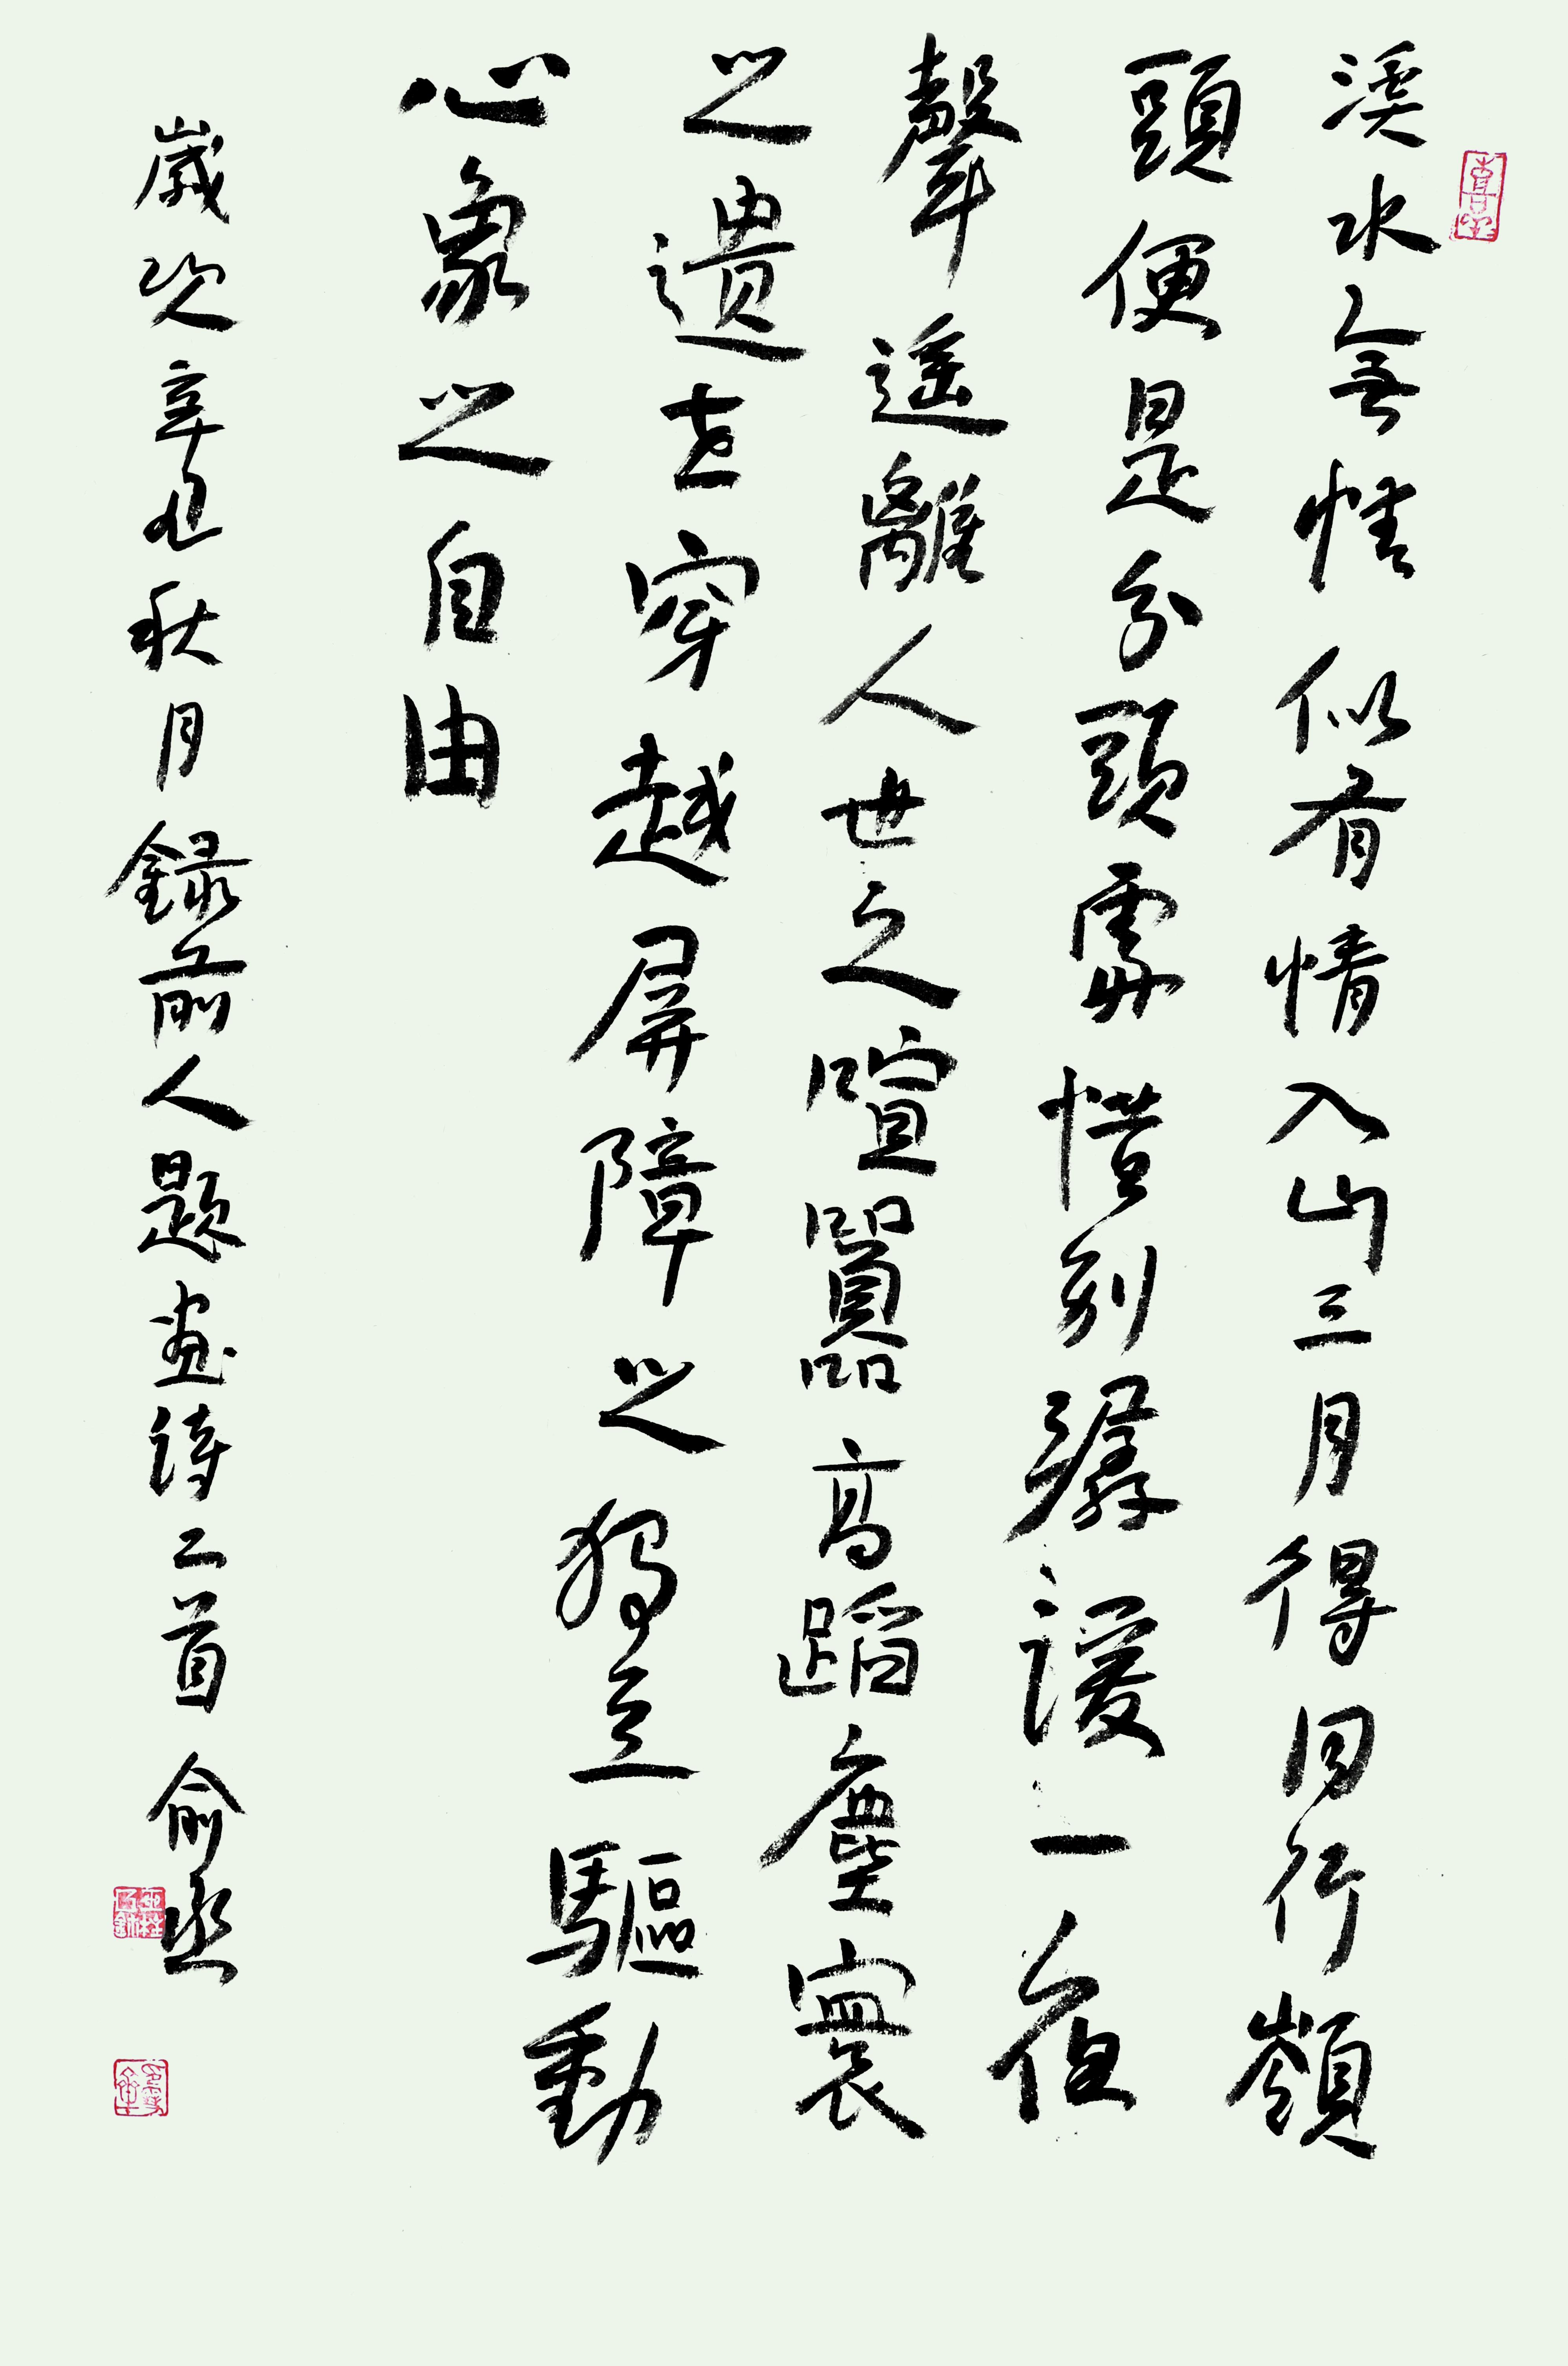 溪水無情似有情入山三月得同行嶺
頭便是分頭處惜別潺湲一夜
聲遥離人世之喧囂高蹈塵寰
之遺世穿越屏障之獨立驅動
心象之自由
歲次辛丑秋月錄前人題畫詩二首俞丞